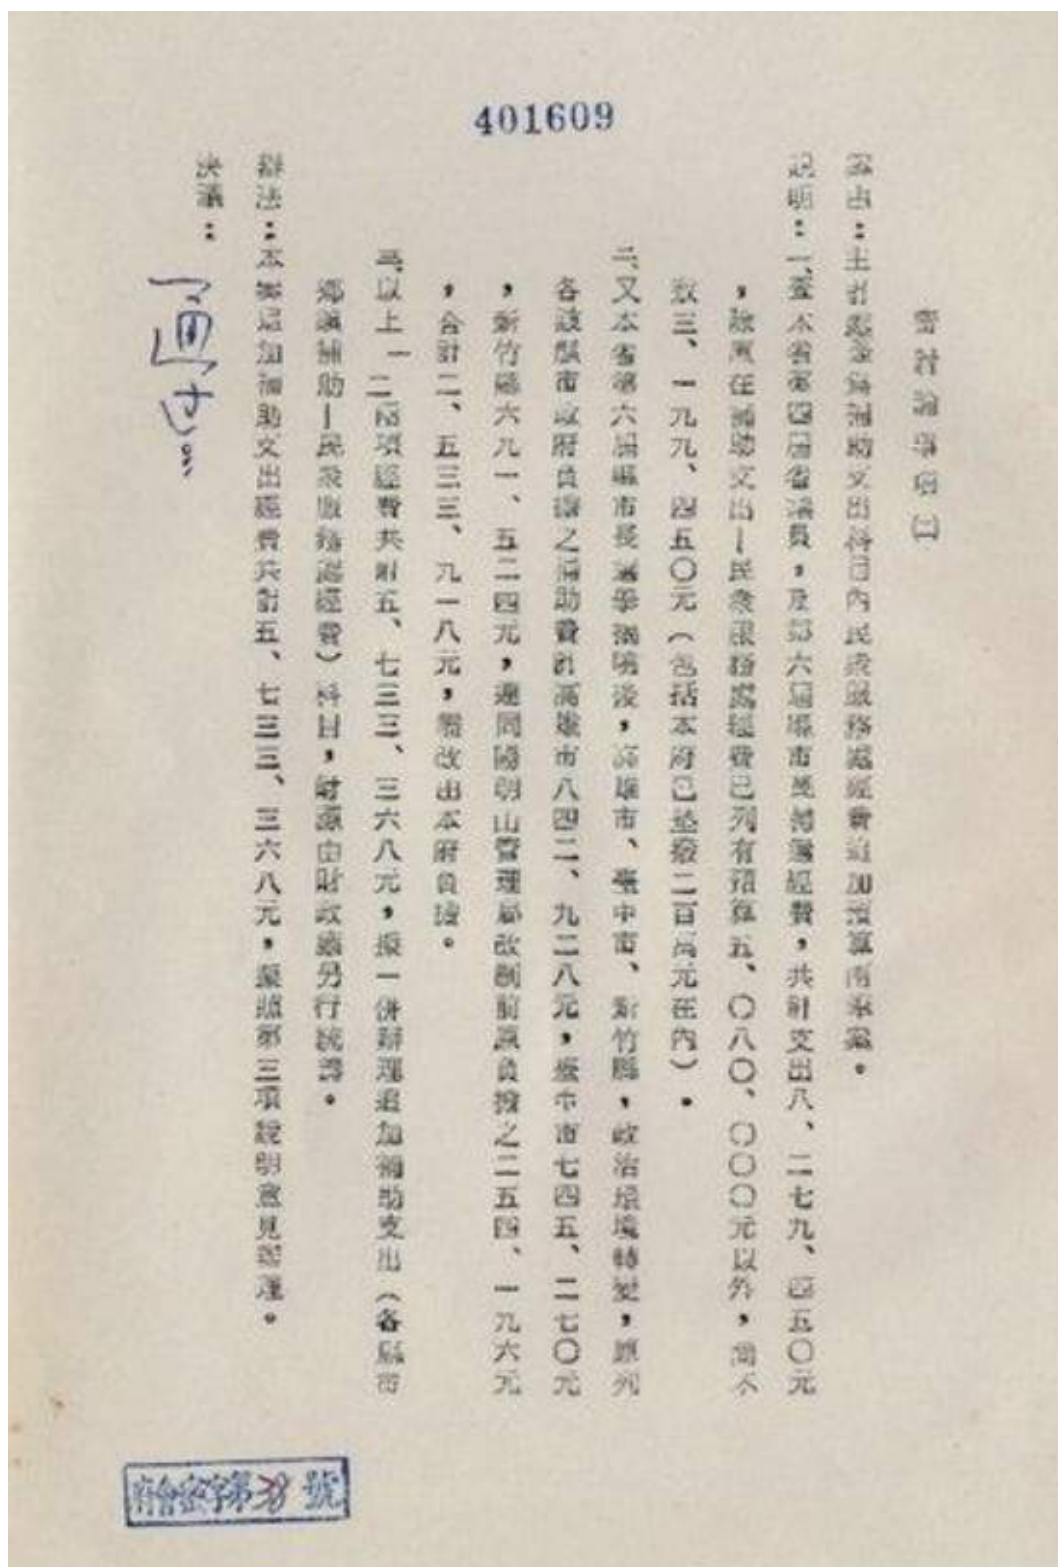 401609
密討論事項(二)
案由：主計處簽為補助支出科目內民衆服務處經費追加預算兩案。
說明：一、查本省第四屆省議員，及第六屆縣市長補選經費，共計支出八、二七九、四五〇元
，除原在補助支出—民衆服務處經費已列有預算五、〇八〇、〇〇〇元以外，尚不
敷三、一九九、四五〇元（包括本府已墊撥二百萬元在內）。
二、又本省第六屆縣市長選舉揭曉後，高雄市、臺中市、新竹縣，政治環境轉變，原列
各該縣市政府負擔之補助費計高雄市八四二、九二八元，臺中市七四五、二七〇元
，新竹縣六九一、五二四元，連同陽明山管理局改制前原負擔之二五四、一九六元
，合計二、五三三、九一八元，需改由本府負擔。
三、以上一二兩項經費共計五、七三三、三六八元，擬一併辦理追加補助支出（各縣市
鄉鎮補助—民衆服務處經費）科目，財源由財政廳另行統籌。
辦法：本案追加補助支出經費共計五、七三三、三六八元，擬照第三項說明意見辦理。
決議：
通過
府會密字第28號